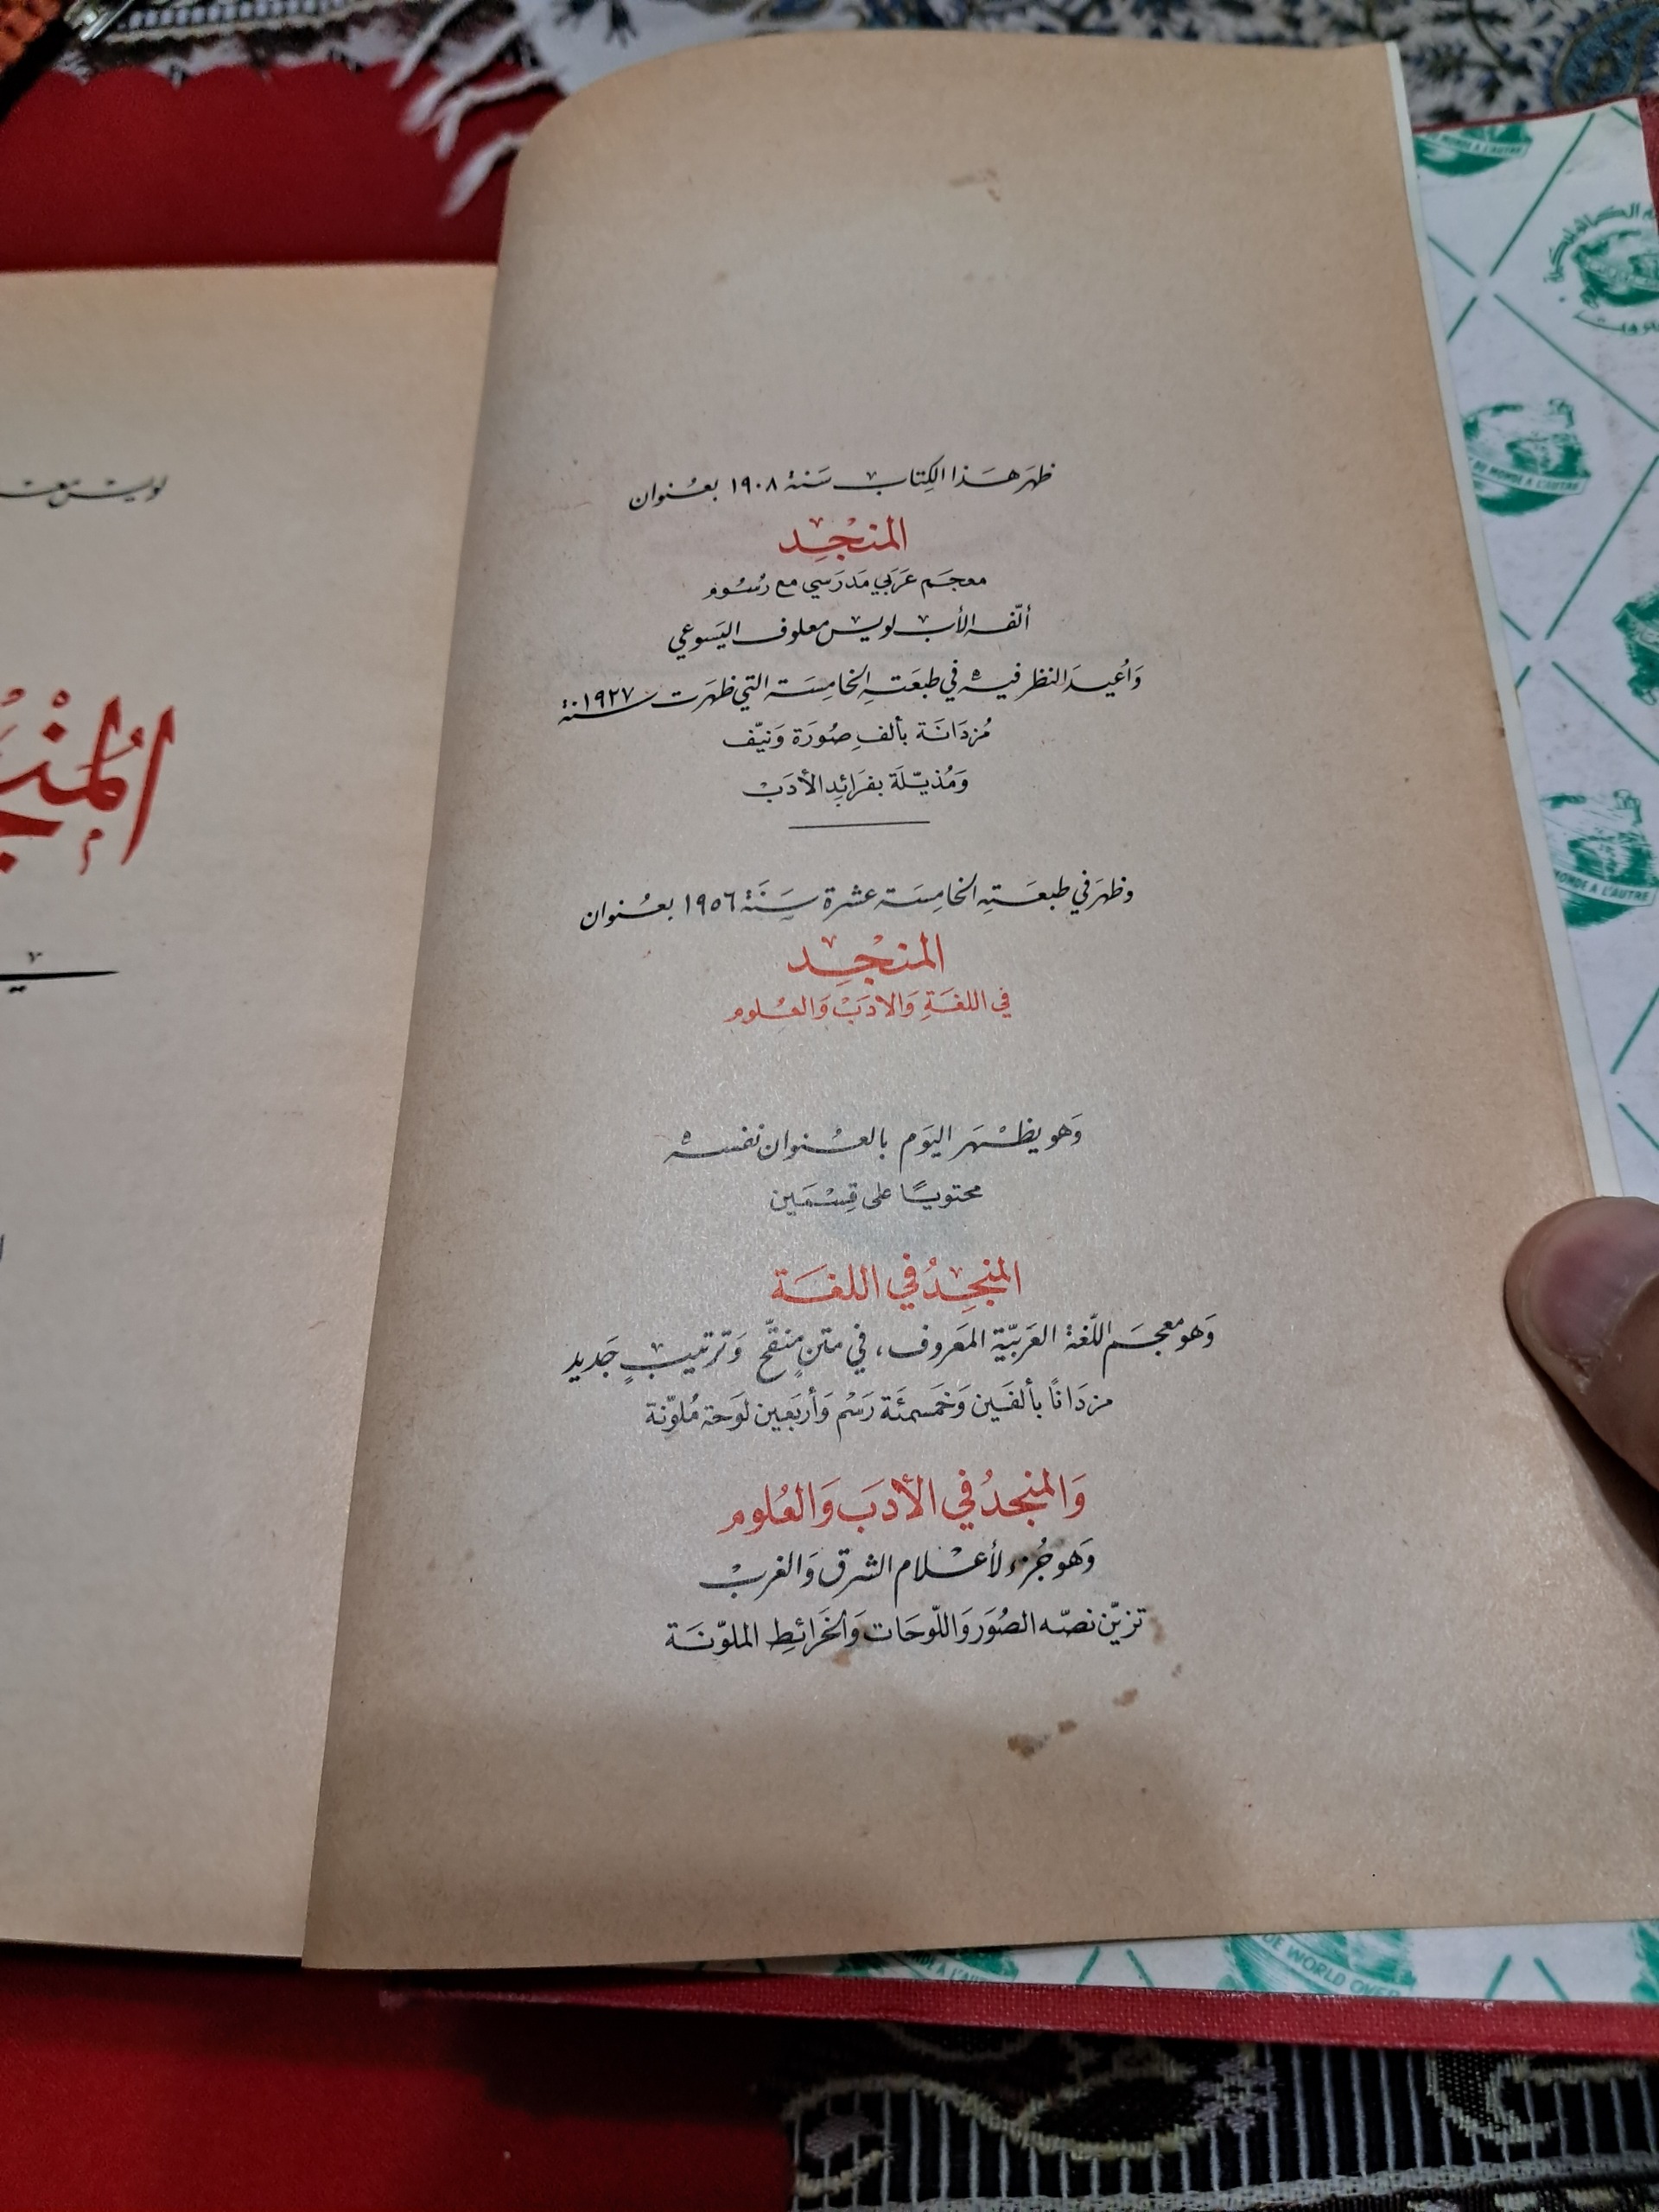 ظهَر هَذا الكِتاب سَنة ١٩٠٨ بعُنوان
المنْجِد
معجَم عَرَبي مَدرَسي مع رُسُوم
ألّفه الأب لويس معلوف اليَسوعي
وَأُعيدَ النظر فيه في طبعَتهِ الخامِسَة التي ظهَرت سنة ١٩٢٧
مُزدَانَة بألفِ صُورَة وَنيّف
وَمُذيّلَة بفرَائِد الأدَبْ
وظهَر في طبعَتِهِ الخامِسَة عشرة سَنَة ١٩٥٦ بعُنوان
المنْجِد
في اللغَةِ وَالادَبْ وَالعُلوم
وَهو يظْهَر اليَوم بالعُنوان نفسه
محتويًا على قِسْمَين
المنجِدُ في اللغَة
وَهو معجَم اللّغة العَربيّة المَعروف، في متنٍ منقّح وَترتيبٍ جَديد
مزدَانًا بألفَين وَخَمسمئَة رَسْم وَأربَعين لَوحَة مُلوّنة
وَالمنجدُ في الأدَب وَالعُلوم
وَهو جُزء لأعْلام الشرق وَالغربْ
تزيّن نصّه الصُوَر وَاللّوحَات وَالخَرائطِ الملوّنَة
لويس
DU MONDE A L'AUTRE
MONDE A L'AUTRE
DE WORLD OVER